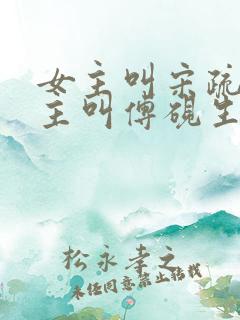 女主叫宋疏
主叫傅砚生
松永孝之
未经同意禁止转载